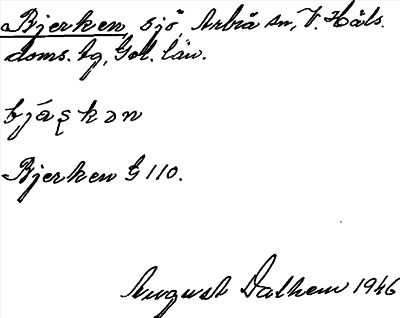 Bjerken, sjö, Arbrå sn, V. Häls.
doms. tg, Gvl. län.
bjæ̨skən
Bjerken G 110.
August Dalhem 1946